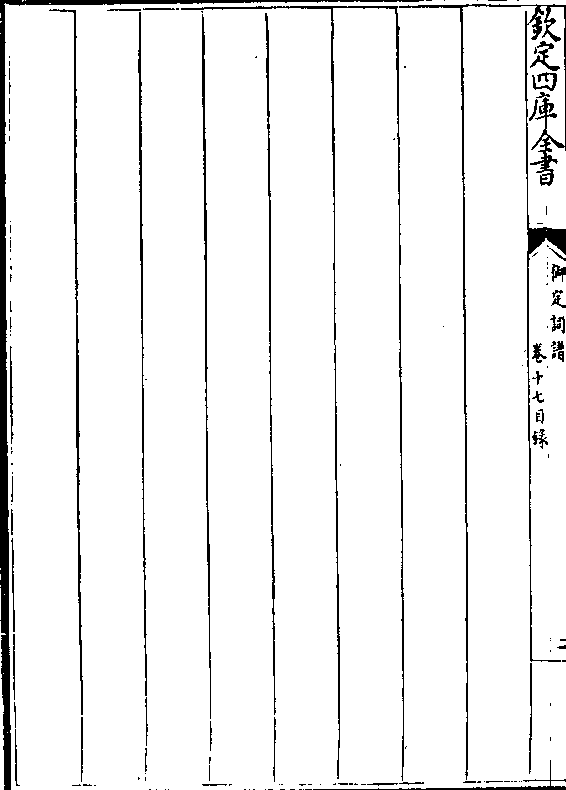 欽定四庫全書
御定詞譜
卷十七目錄
二